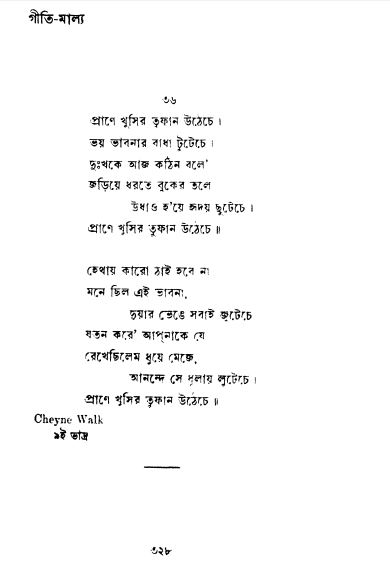 গীতি-মাল্য
৩৬
প্রাণে খুসির তুফান উঠেচে।
ভয় ভাবনার বাধা টুটেচে।
দুঃখকে আজ কঠিন বলে'
জড়িয়ে ধরতে বুকের তলে
উধাও হ'য়ে হৃদয় ছুটেচে।
প্রাণে খুসির তুফান উঠেচে॥
হেথায় কারো ঠাঁই হবে না
মনে ছিল এই ভাবনা,
দুয়ার ভেঙে সবাই জুটেচে
যতন করে' আপ্‌নাকে যে
রেখেছিলেম ধুয়ে মেজে,
আনন্দে সে ধূলায় লুটেচে।
প্রাণে খুসির তুফান উঠেচে॥
Cheyne Walk
৯ই ভাদ্র
৩২৮